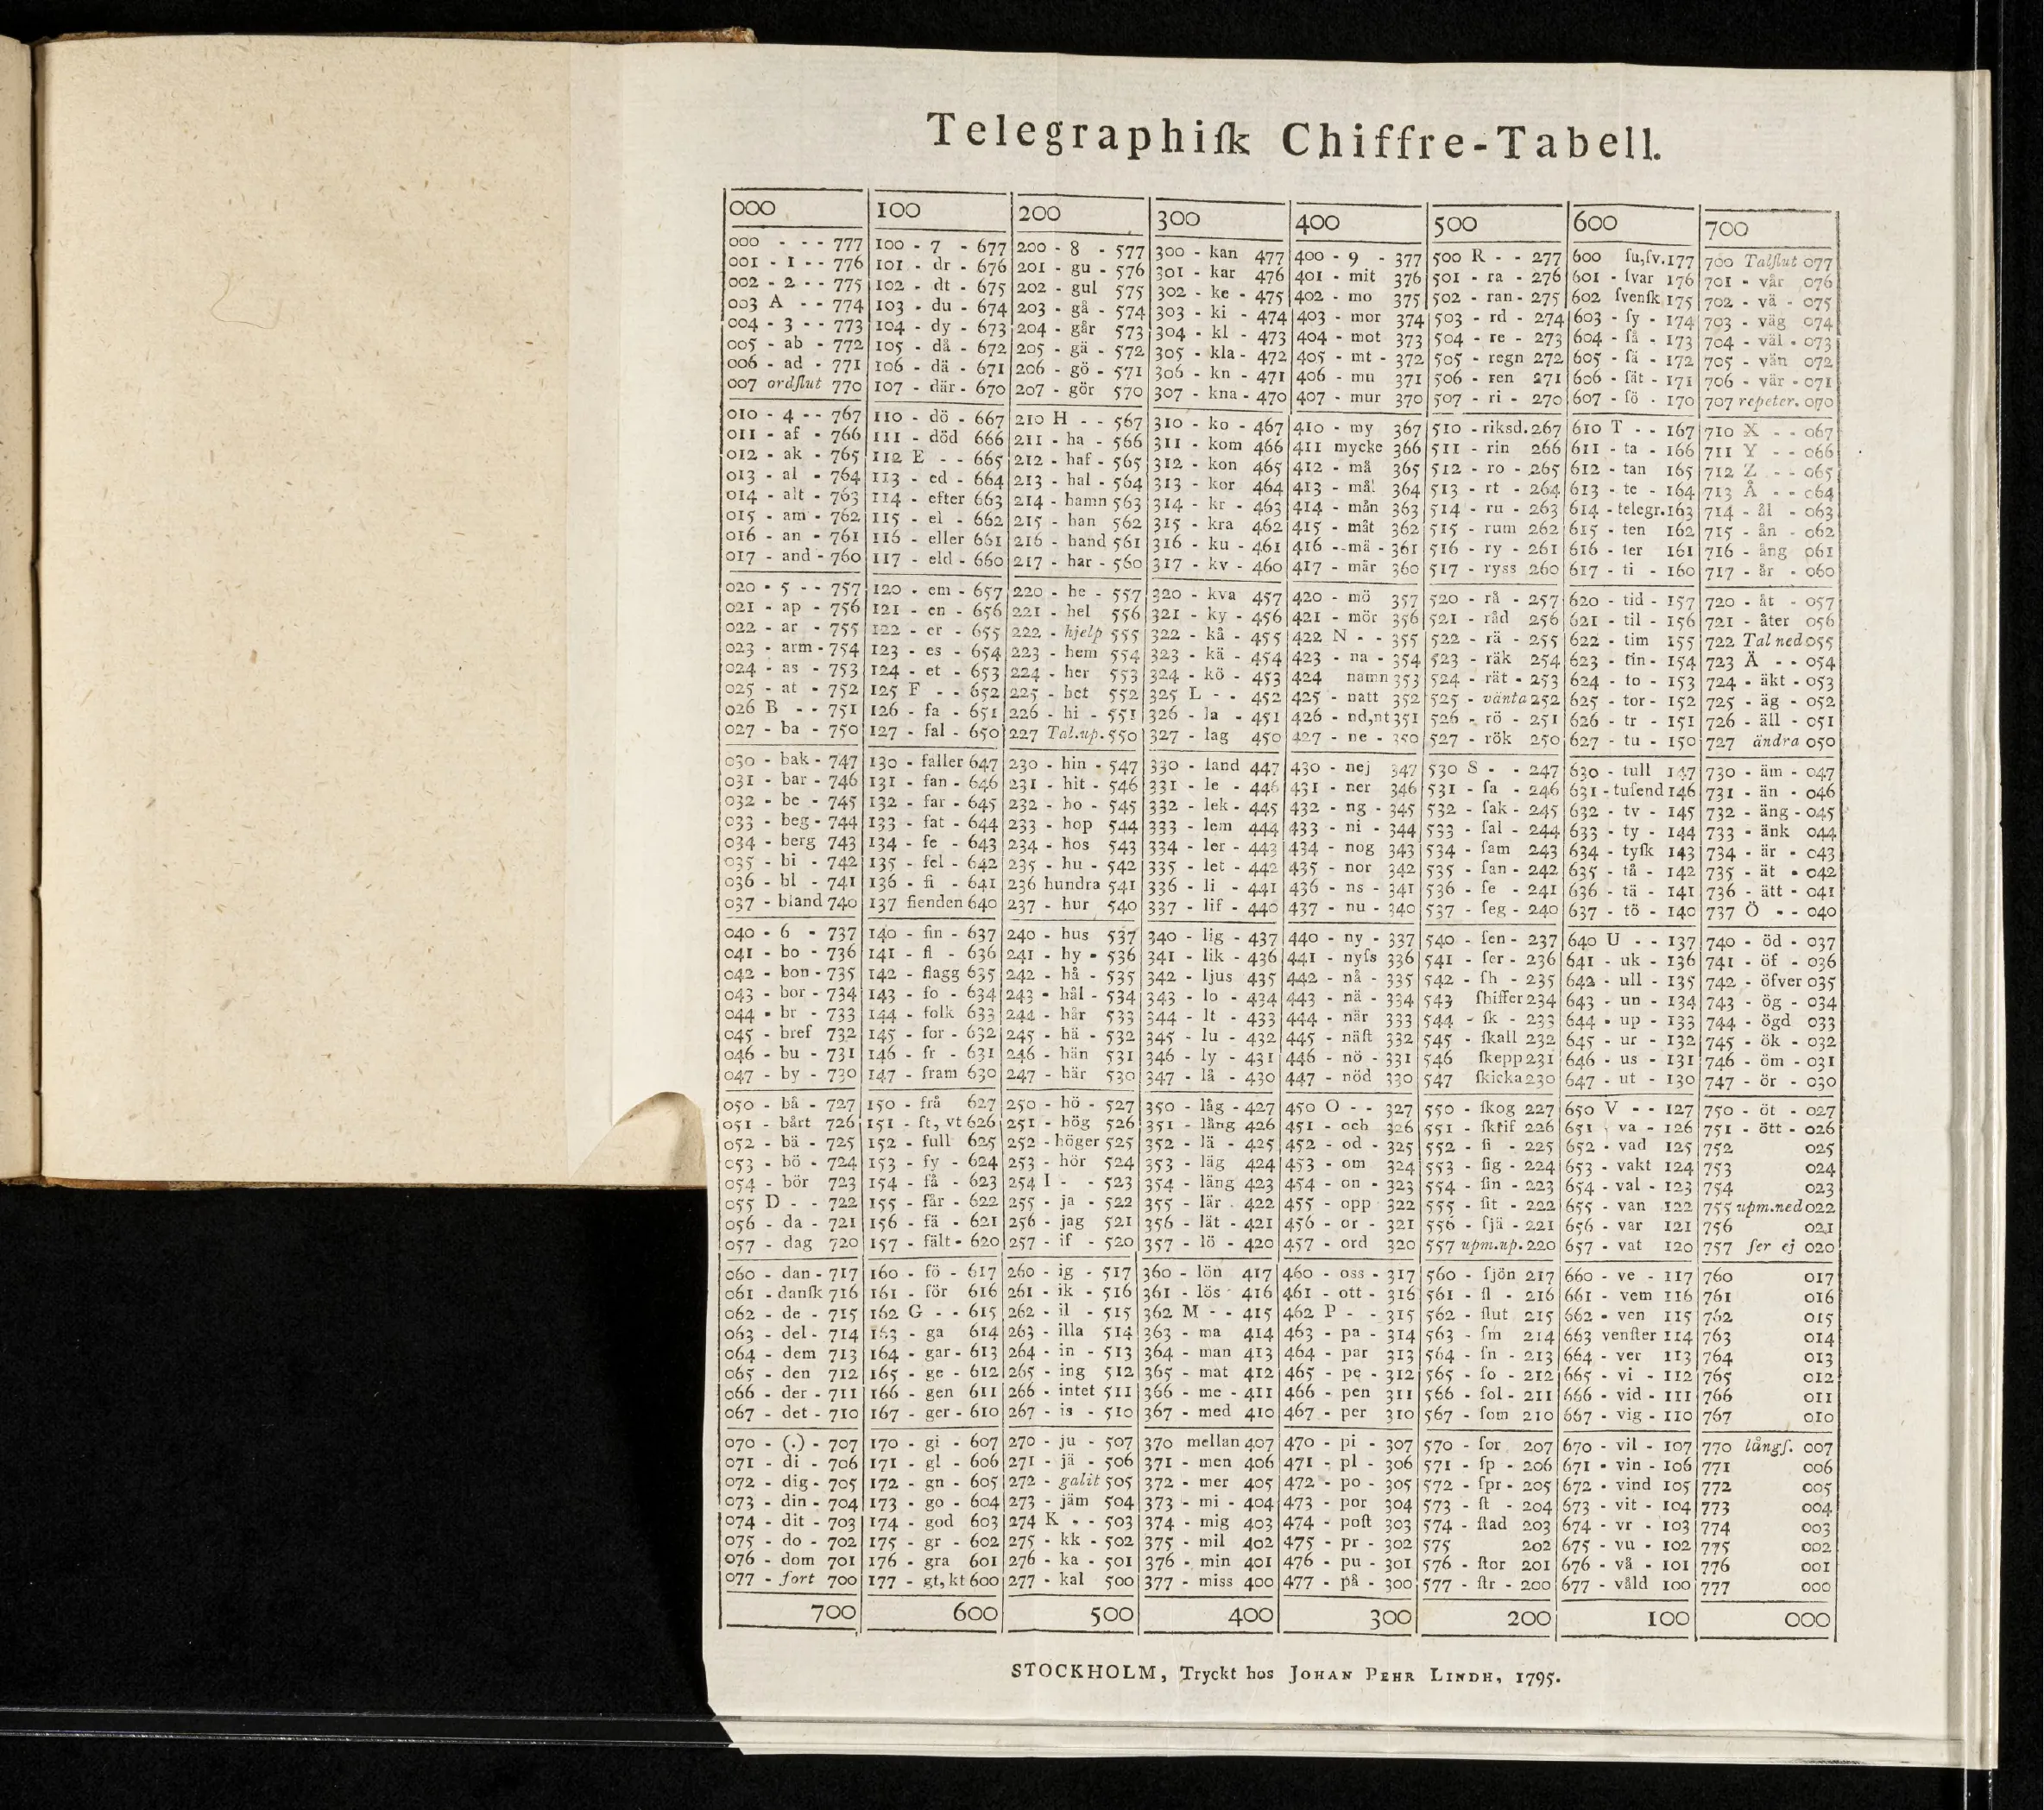 Telegraphiſk Chiffre-Tabell.
000 100 200 300 400 500 600 700
000 - - - 777 100 - 7 - 677 200 - 8 - 577 300 - kan 477 400 - 9 - 377 500 R - - 277 600 ſu,ſv.177 700 Talſlut 077
001 - 1 - - 776 101 - dr - 676 201 - gu - 576 301 - kar 476 401 - mit 376 501 - ra - 276 601 - ſvar 176 701 - vår 076
002 - 2 - - 775 102 - dt - 675 202 - gul 575 302 - ke - 475 402 - mo 375 502 - ran - 275 602 ſvenſk 175 702 - vä - 075
003 A - - 774 103 - du - 674 203 - gå - 574 303 - ki - 474 403 - mor 374 503 - rd - 274 603 - ſy - 174 703 - väg 074
004 - 3 - - 773 104 - dy - 673 204 - går 573 304 - kl - 473 404 - mot 373 504 - re - 273 604 - ſå - 173 704 - väl - 073
005 - ab - 772 105 - då - 672 205 - gä - 572 305 - kla - 472 405 - mt - 372 505 - regn 272 605 - ſä - 172 705 - vän 072
006 - ad - 771 106 - dä - 671 206 - gö - 571 306 - kn - 471 406 - mu 371 506 - ren 271 606 - ſät - 171 706 - vär - 071
007 ordſlut 770 107 - där - 670 207 - gör 570 307 - kna - 470 407 - mur 370 507 - ri - 270 607 - ſö - 170 707 repeter. 070
010 - 4 - - 767 110 - dö - 667 210 H - - 567 310 - ko - 467 410 - my 367 510 - riksd. 267 610 T - - 167 710 X - - 067
011 - af - 766 111 - död 666 211 - ha - 566 311 - kom 466 411 mycke 366 511 - rin 266 611 - ta - 166 711 Y - - 066
012 - ak - 765 112 E - - 665 212 - haf - 565 312 - kon 465 412 - må 365 512 - ro - 265 612 - tan 165 712 Z - - 065
013 - al - 764 113 - ed - 664 213 - hal - 564 313 - kor 464 413 - mål 364 513 - rt - 264 613 - te - 164 713 Å - - 064
014 - alt - 763 114 - efter 663 214 - hamn 563 314 - kr - 463 414 - mån 363 514 - ru - 263 614 - telegr. 163 714 - ål - 063
015 - am - 762 115 - el - 662 215 - han 562 315 - kra 462 415 - måt 362 515 - rum 262 615 - ten 162 715 - ån - 062
016 - an - 761 116 - eller 661 216 - hand 561 316 - ku - 461 416 - mä - 361 516 - ry - 261 616 - ter 161 716 - ång 061
017 - and - 760 117 - eld - 660 217 - har - 560 317 - kv - 460 417 - mär 360 517 - ryss 260 617 - ti - 160 717 - år - 060
020 - 5 - - 757 120 - em - 657 220 - he - 557 320 - kva 457 420 - mö 357 520 - rå - 257 620 - tid - 157 720 - åt - 057
021 - ap - 756 121 - en - 656 221 - hel 556 321 - ky - 456 421 - mör 356 521 - råd 256 621 - til - 156 721 - åter 056
022 - ar - 755 122 - er - 655 222 - hjelp 555 322 - kå - 455 422 N - - 355 522 - rä - 255 622 - tim 155 722 Tal ned 055
023 - arm - 754 123 - es - 654 223 - hem 554 323 - kä - 454 423 - na - 354 523 - räk 254 623 - tin - 154 723 Ä - - 054
024 - as - 753 124 - et - 653 224 - her 553 324 - kö - 453 424 namn 353 524 - rät - 253 624 - to - 153 724 - äkt - 053
025 - at - 752 125 F - - 652 225 - het 552 325 L - - 452 425 - natt 352 525 - vänta 252 625 - tor - 152 725 - äg - 052
026 B - - 751 126 - fa - 651 226 - hi - 551 326 - la - 451 426 - nd,nt 351 526 - rö - 251 626 - tr - 151 726 - äll - 051
027 - ba - 750 127 - fal - 650 227 Tal.up. 550 327 - lag 450 427 - ne - 350 527 - rök 250 627 - tu - 150 727 ändra 050
030 - bak - 747 130 - faller 647 230 - hin - 547 330 - land 447 430 - nej 347 530 S - - 247 630 - tull 147 730 - äm - 047
031 - bar - 746 131 - fan - 646 231 - hit - 546 331 - le - 446 431 - ner 346 531 - ſa - 246 631 - tuſend 146 731 - än - 046
032 - be - 745 132 - far - 645 232 - ho - 545 332 - lek - 445 432 - ng - 345 532 - ſak - 245 632 - tv - 145 732 - äng - 045
033 - beg - 744 133 - fat - 644 233 - hop 544 333 - lem 444 433 - ni - 344 533 - ſal - 244 633 - ty - 144 733 - änk 044
034 - berg 743 134 - fe - 643 234 - hos 543 334 - ler - 443 434 - nog 343 534 - ſam 243 634 - tyſk 143 734 - är - 043
035 - bi - 742 135 - fel - 642 235 - hu - 542 335 - let - 442 435 - nor 342 535 - ſan - 242 635 - tå - 142 735 - ät - 042
036 - bl - 741 136 - fi - 641 236 hundra 541 336 - li - 441 436 - ns - 341 536 - ſe - 241 636 - tä - 141 736 - ätt - 041
037 - bland 740 137 fienden 640 237 - hur 540 337 - lif - 440 437 - nu - 340 537 - ſeg - 240 637 - tö - 140 737 Ö - - 040
040 - 6 - 737 140 - fin - 637 240 - hus 537 340 - lig - 437 440 - ny - 337 540 - ſen - 237 640 U - - 137 740 - öd - 037
041 - bo - 736 141 - fl - 636 241 - hy - 536 341 - lik - 436 441 - nyſs 336 541 - ſer - 236 641 - uk - 136 741 - öf - 036
042 - bon - 735 142 - flagg 635 242 - hå - 535 342 - ljus 435 442 - nå - 335 542 - ſh - 235 642 - ull - 135 742 - öfver 035
043 - bor - 734 143 - fo - 634 243 - hål - 534 343 - lo - 434 443 - nä - 334 543 ſhiffer 234 643 - un - 134 743 - ög - 034
044 - br - 733 144 - folk 633 244 - hår 533 344 - lt - 433 444 - när 333 544 - ſk - 233 644 - up - 133 744 - ögd 033
045 - bref 732 145 - for - 632 245 - hä - 532 345 - lu - 432 445 - näſt 332 545 - ſkall 232 645 - ur - 132 745 - ök - 032
046 - bu - 731 146 - fr - 631 246 - hän 531 346 - ly - 431 446 - nö - 331 546 ſkepp 231 646 - us - 131 746 - öm - 031
047 - by - 730 147 - fram 630 247 - här 530 347 - lå - 430 447 - nöd 330 547 ſkicka 230 647 - ut - 130 747 - ör - 030
050 - bå - 727 150 - frå 627 250 - hö - 527 350 - låg - 427 450 O - - 327 550 - ſkog 227 650 V - - 127 750 - öt - 027
051 - bårt 726 151 - ft, vt 626 251 - hög 526 351 - lång 426 451 - och 326 551 - ſkrif 226 651 - va - 126 751 - ött - 026
052 - bä - 725 152 - full 625 252 - höger 525 352 - lä - 425 452 - od - 325 552 - ſi - 225 652 - vad 125 752 025
053 - bö - 724 153 - fy - 624 253 - hör 524 353 - läg 424 453 - om 324 553 - ſig - 224 653 - vakt 124 753 024
054 - bör 723 154 - få - 623 254 I - - 523 354 - läng 423 454 - on - 323 554 - ſin - 223 654 - val - 123 754 023
055 D - - 722 155 - får - 622 255 - ja - 522 355 - lär - 422 455 - opp 322 555 - ſit - 222 655 - van 122 755 upm.ned 022
056 - da - 721 156 - fä - 621 256 - jag 521 356 - lät - 421 456 - or - 321 556 - ſjä - 221 656 - var 121 756 021
057 - dag 720 157 - fält - 620 257 - if - 520 357 - lö - 420 457 - ord 320 557 upm.up. 220 657 - vat 120 757 ſer ej 020
060 - dan - 717 160 - fö - 617 260 - ig - 517 360 - lön 417 460 - oss - 317 560 - ſjön 217 660 - ve - 117 760 017
061 - danſk 716 161 - för 616 261 - ik - 516 361 - lös 416 461 - ott - 316 561 - ſl - 216 661 - vem 116 761 016
062 - de - 715 162 G - - 615 262 - il - 515 362 M - - 415 462 P - - 315 562 - ſlut 215 662 - ven 115 762 015
063 - del - 714 163 - ga 614 263 - illa 514 363 - ma 414 463 - pa - 314 563 - ſm 214 663 venſter 114 763 014
064 - dem 713 164 - gar - 613 264 - in - 513 364 - man 413 464 - par 313 564 - ſn - 213 664 - ver 113 764 013
065 - den 712 165 - ge - 612 265 - ing 512 365 - mat 412 465 - pe - 312 565 - ſo - 212 665 - vi - 112 765 012
066 - der - 711 166 - gen 611 266 - intet 511 366 - me - 411 466 - pen 311 566 - ſol - 211 666 - vid - 111 766 011
067 - det - 710 167 - ger - 610 267 - is - 510 367 - med 410 467 - per 310 567 - ſom 210 667 - vig - 110 767 010
070 - (.) - 707 170 - gi - 607 270 - ju - 507 370 mellan 407 470 - pi - 307 570 - ſor 207 670 - vil - 107 770 långſ. 007
071 - di - 706 171 - gl - 606 271 - jä - 506 371 - men 406 471 - pl - 306 571 - ſp - 206 671 - vin - 106 771 006
072 - dig - 705 172 - gn - 605 272 - galit 505 372 - mer 405 472 - po - 305 572 - ſpr - 205 672 - vind 105 772 005
073 - din - 704 173 - go - 604 273 - jäm 504 373 - mi - 404 473 - por 304 573 - ſt - 204 673 - vit - 104 773 004
074 - dit - 703 174 - god 603 274 K - - 503 374 - mig 403 474 - poſt 303 574 - ſtad 203 674 - vr - 103 774 003
075 - do - 702 175 - gr - 602 275 - kk - 502 375 - mil 402 475 - pr - 302 575 202 675 - vu - 102 775 002
076 - dom 701 176 - gra 601 276 - ka - 501 376 - min 401 476 - pu - 301 576 - ſtor 201 676 - vå - 101 776 001
077 - fort 700 177 - gt, kt 600 277 - kal 500 377 - miss 400 477 - på - 300 577 - ſtr - 200 677 - våld 100 777 000
700 600 500 400 300 200 100 000
STOCKHOLM, Tryckt hos JOHAN PEHR LINDH, 1795.